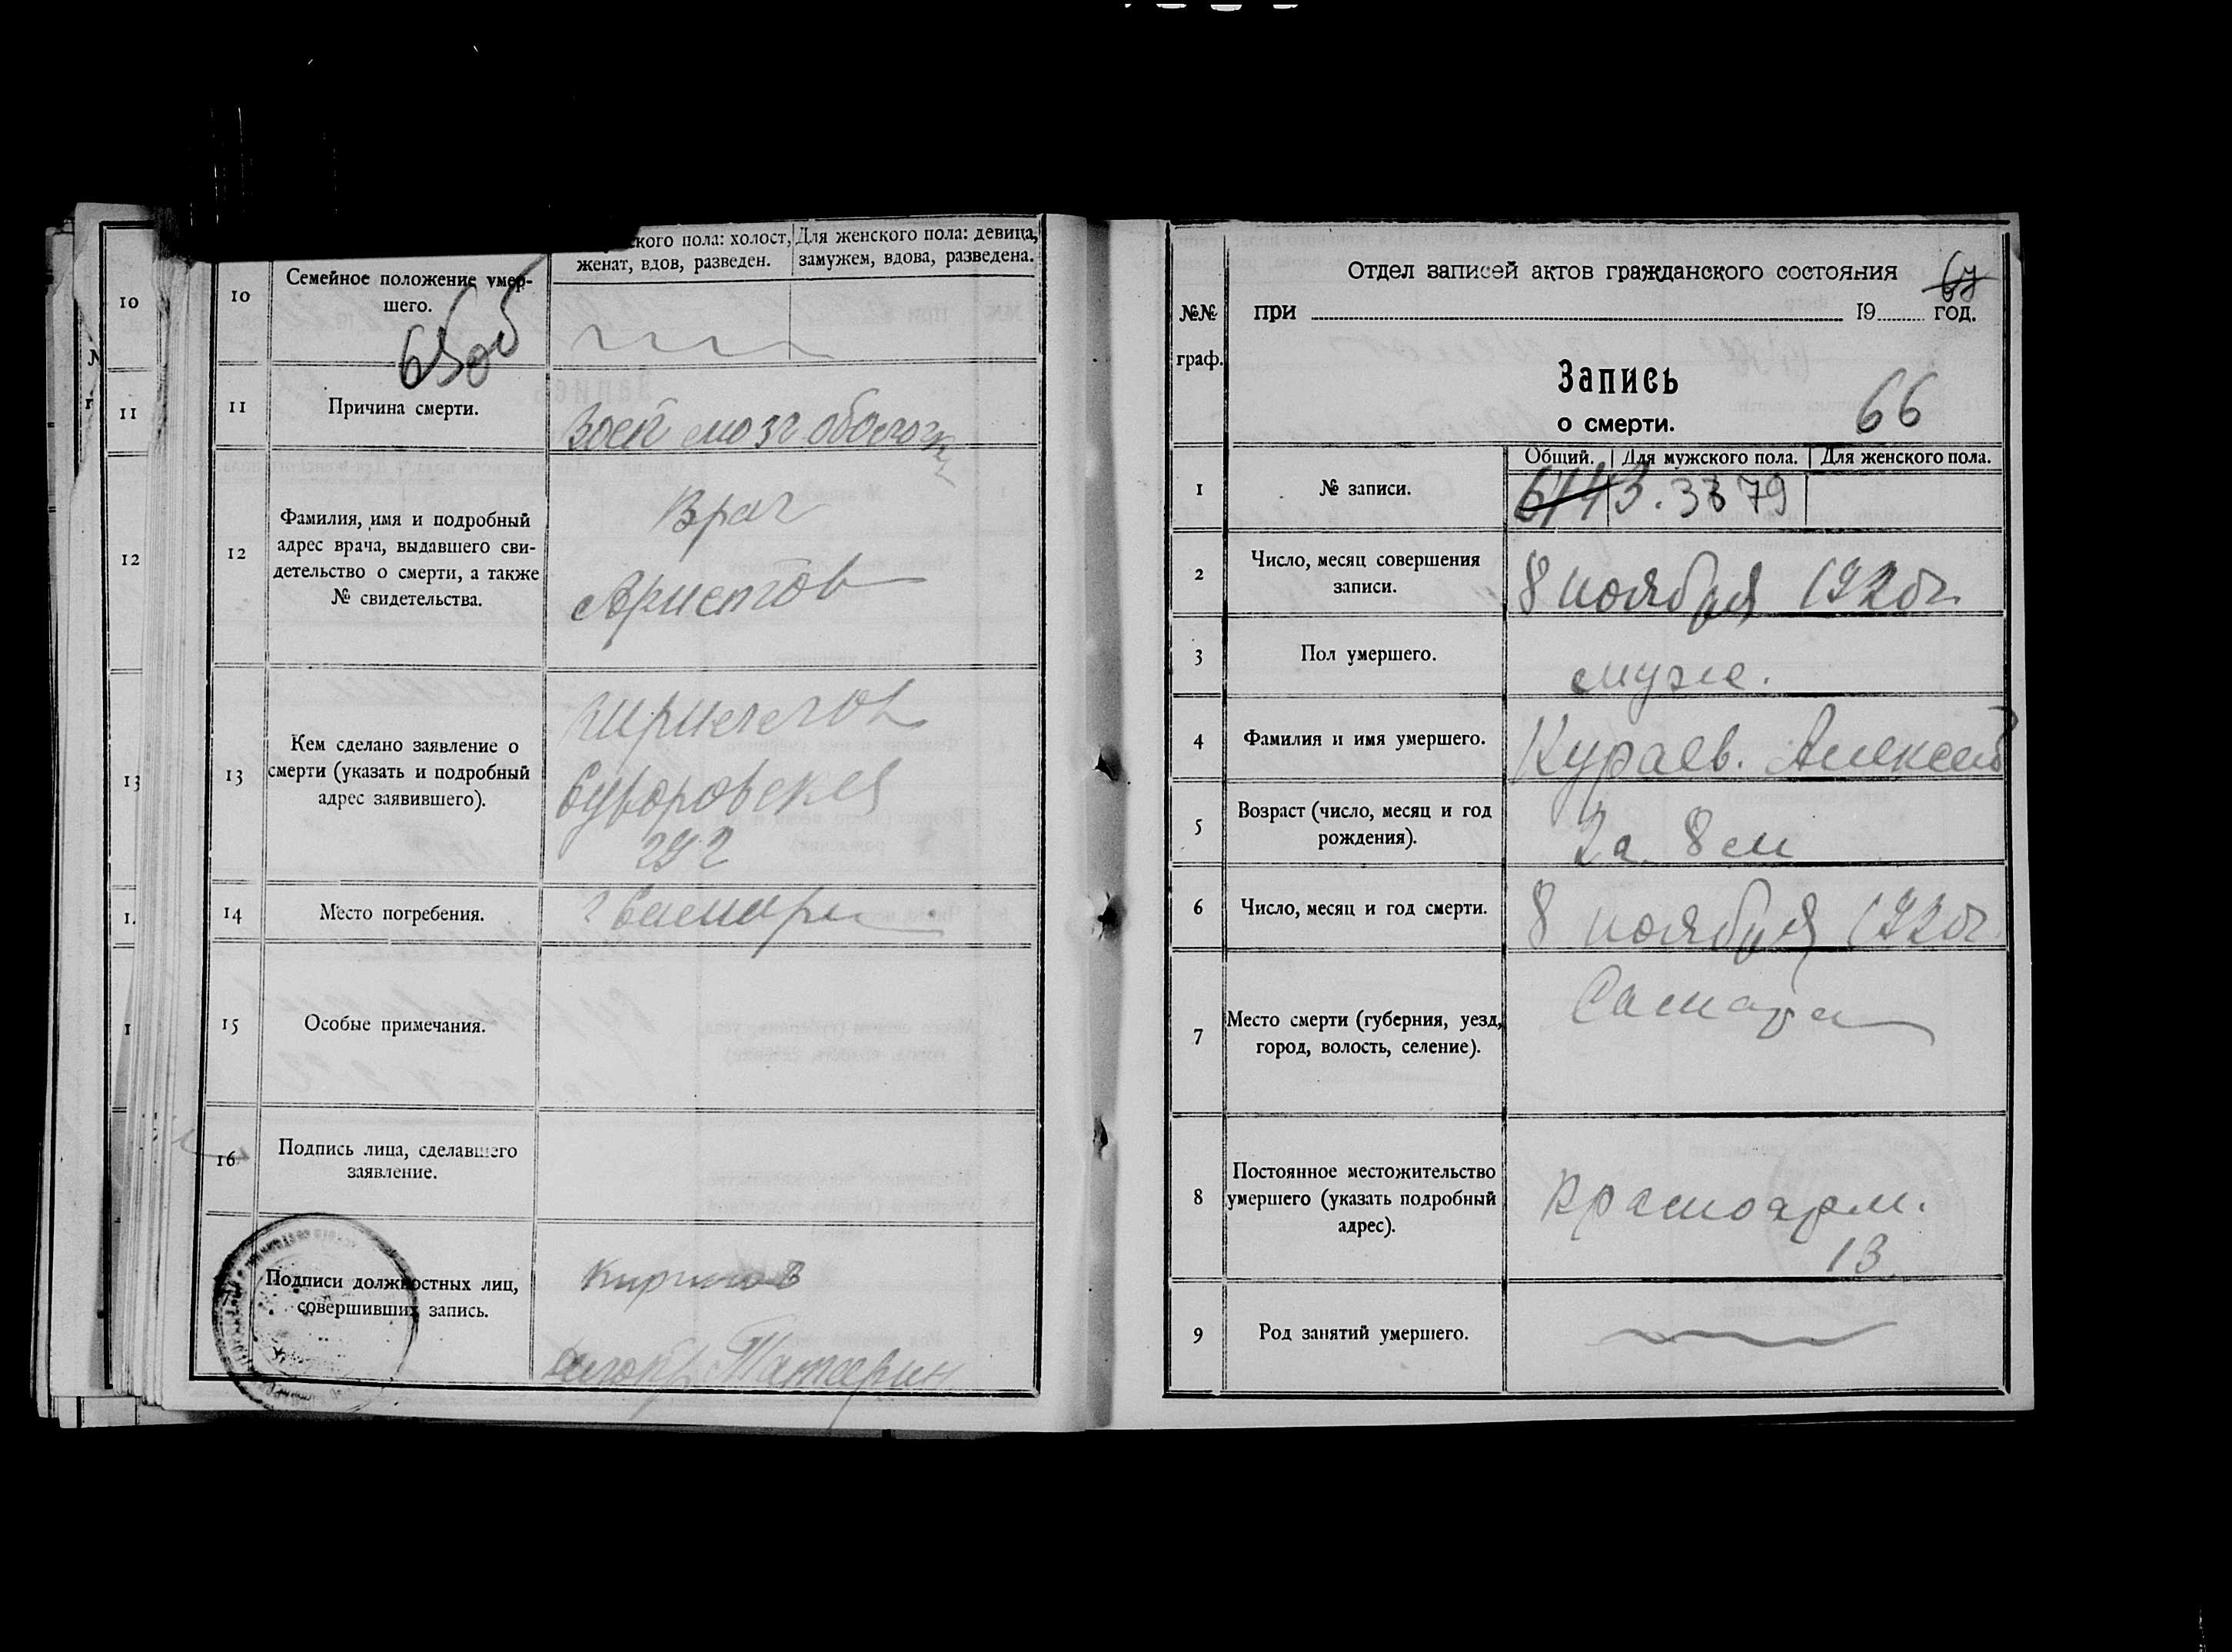 10
11
12
13
10
Семейное положение умер-
шего.
ского пола: холост,
женат, вдов, разведен.
Для женского пола: девица,
замужем, вдова, разведена.
11
Причина смерти.
Восп мозг оболочк
12
Фамилия, имя и подробный
адрес врача, выдавшего сви-
детельство о смерти, а также
№ свидетельства.
Врач
Аристов
13
Кем сделано заявление о
смерти (указать и подробный
адрес заявившего).
Суворовская
292
14
Место погребения.
г Самара
15
Особые примечания.
16
Подпись лица, сделавшего
заявление.
Подписи должностных лиц,
совершивших запись.
Татарин
№№
граф.
Отдел записей актов гражданского состояния
67
при 19 год.
Запись
о смерти.
66
1
№ записи.
Общий. Для мужского пола. Для женского пола.
3379
2
Число, месяц совершения
записи.
8 ноября 1920г.
3
Пол умершего.
муже.
4
Фамилия и имя умершего.
Кураев. Алексей
5
Возраст (число, месяц и год
рождения).
2 г. 8 м
6
Число, месяц и год смерти.
8 ноября 1920г.
7
Место смерти (губерния, уезд,
город, волость, селение).
Самара
8
Постоянное местожительство
умершего (указать подробный
адрес).
Красноарм.
13
9
Род занятий умершего.